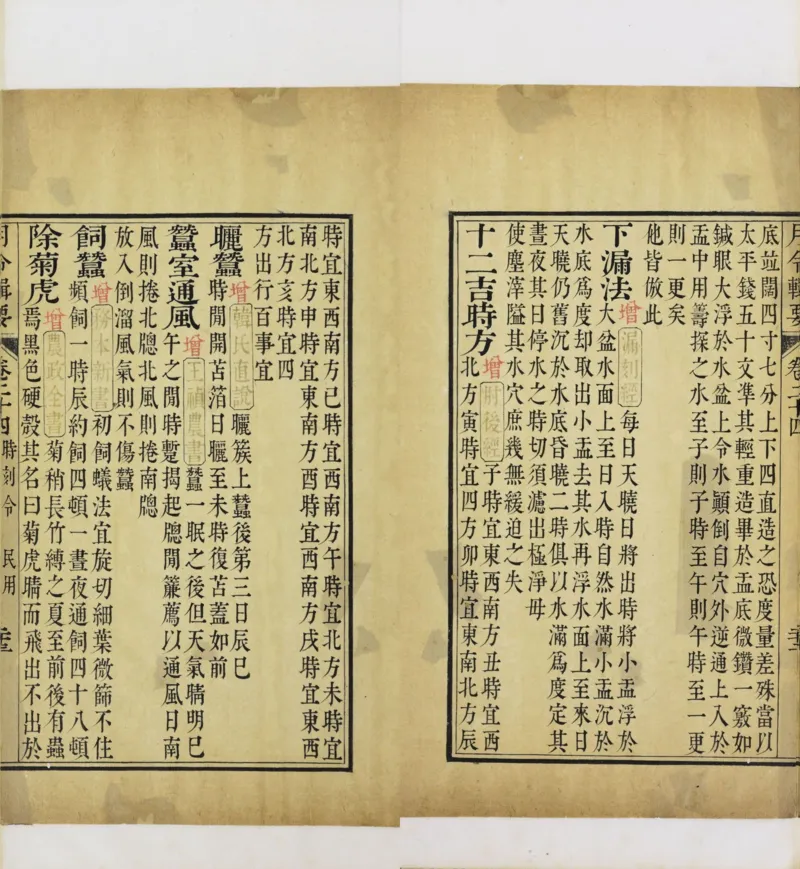 月令輯要 卷二十四
底竝闊四寸七分上下四直造之恐度量差殊當以
太平錢五十文準其輕重造畢於盂底微鑽一竅如
鍼眼大浮於水盆上令水顚倒自穴外逆通上入於
盂中用籌探之水至子則子時至午則午時至一更
則一更矣
他皆倣此
下漏法 增 漏刻經 每日天曉日將出時將小盂浮於
大盆水面上至日入時自然水滿小盂沉於
水底爲度却取出小盂去其水再浮水面上至來日
天曉仍舊沉於水底昏曉二時俱以水滿爲度定其
晝夜其日停水之時切須濾出極淨毋
使塵滓隘其水穴庶幾無緩迫之失
十二吉時方 增 肘後經 子時宜東西南方丑時宜西
北方寅時宜四方卯時宜東南北方辰
時宜東西南方巳時宜西南方午時宜北方未時宜
南北方申時宜東南方酉時宜西南方戌時宜東西
北方亥時宜四
方出行百事宜
曬蠶 增 韓氏直說 曬簇上蠶後第三日辰巳
時閒開苫箔日曬至未時復苫蓋如前
蠶室通風 增 王禎農書 蠶一眠之後但天氣晴明巳
午之閒時蹔揭起牕閒簾薦以通風日南
風則捲北牕北風則捲南牕
放入倒溜風氣則不傷蠶
飼蠶 增 務本新書 初飼蟻法宜旋切細葉微篩不住
頻飼一時辰約飼四頓一晝夜通飼四十八頓
除菊虎 增 農政全書 菊稍長竹縛之夏至前後有蟲
焉黑色硬殼其名曰菊虎晴而飛出不出於
月令輯要 卷二十四 時刻令 民用